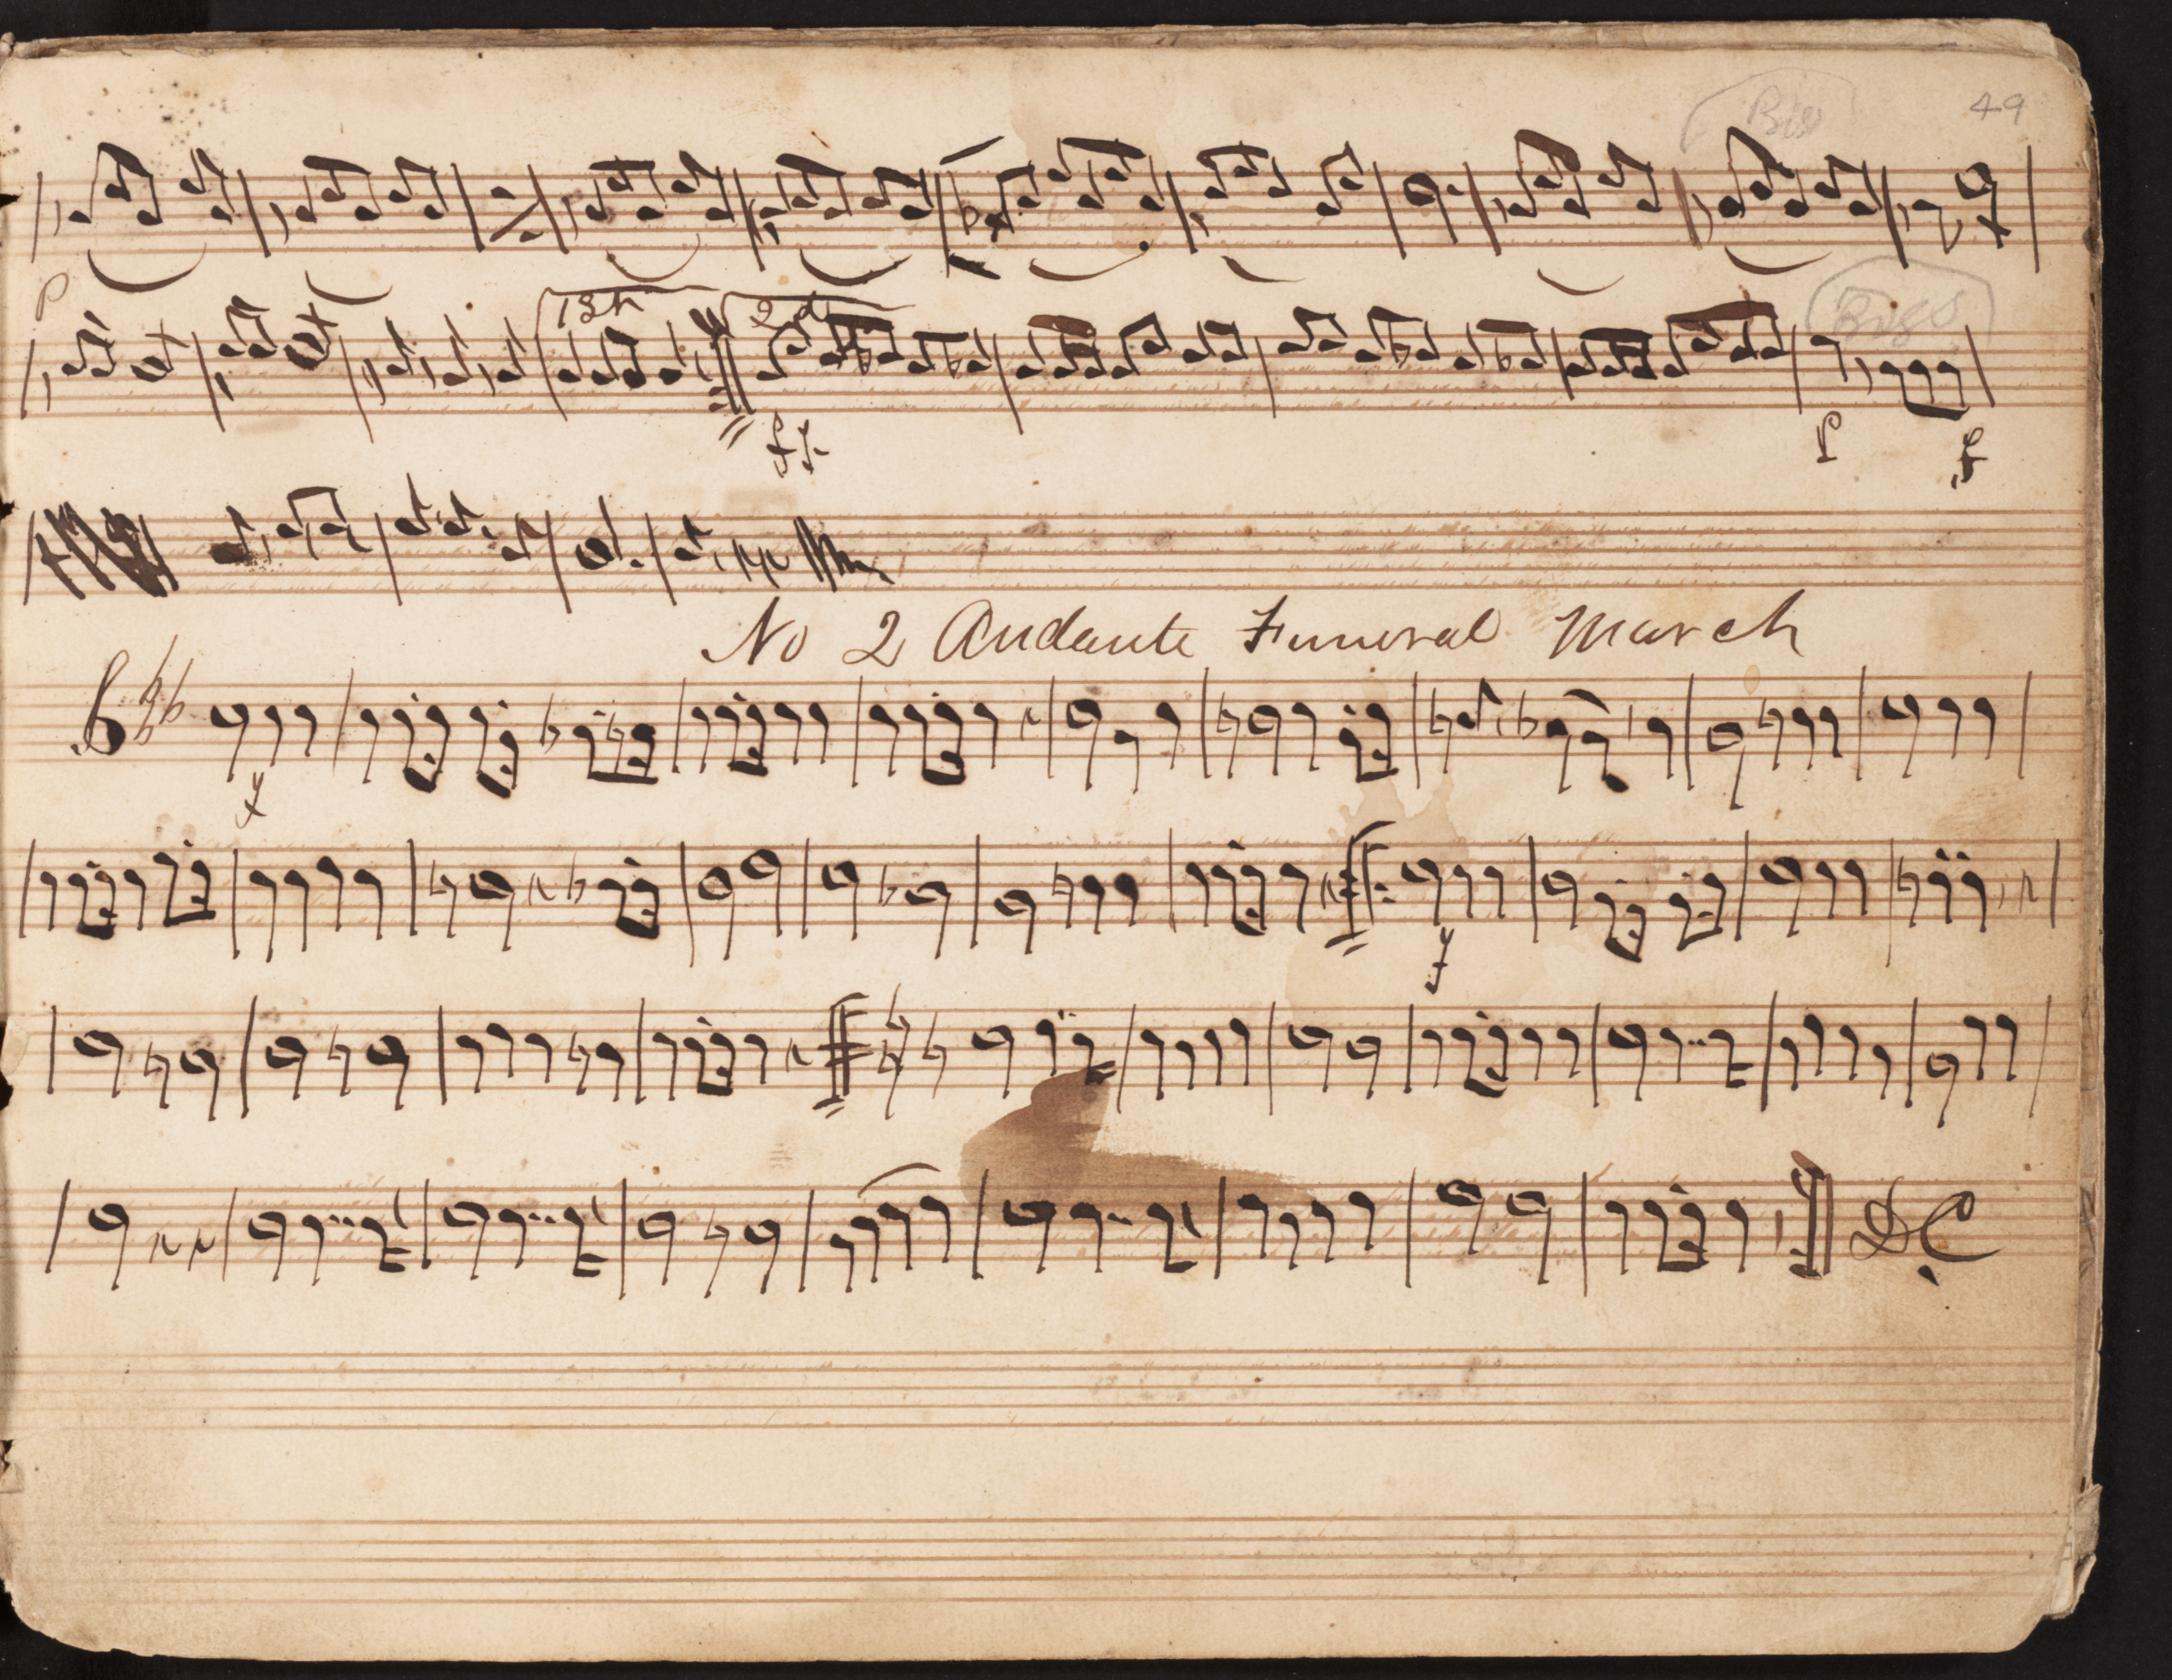 Bis 49
P
1st 2d
Biss
ff P f
No 2 Andante Funeral March
f
f
DC